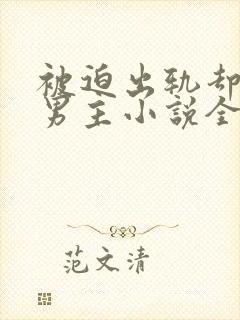 被迫出轨却
男主小说全
范文清